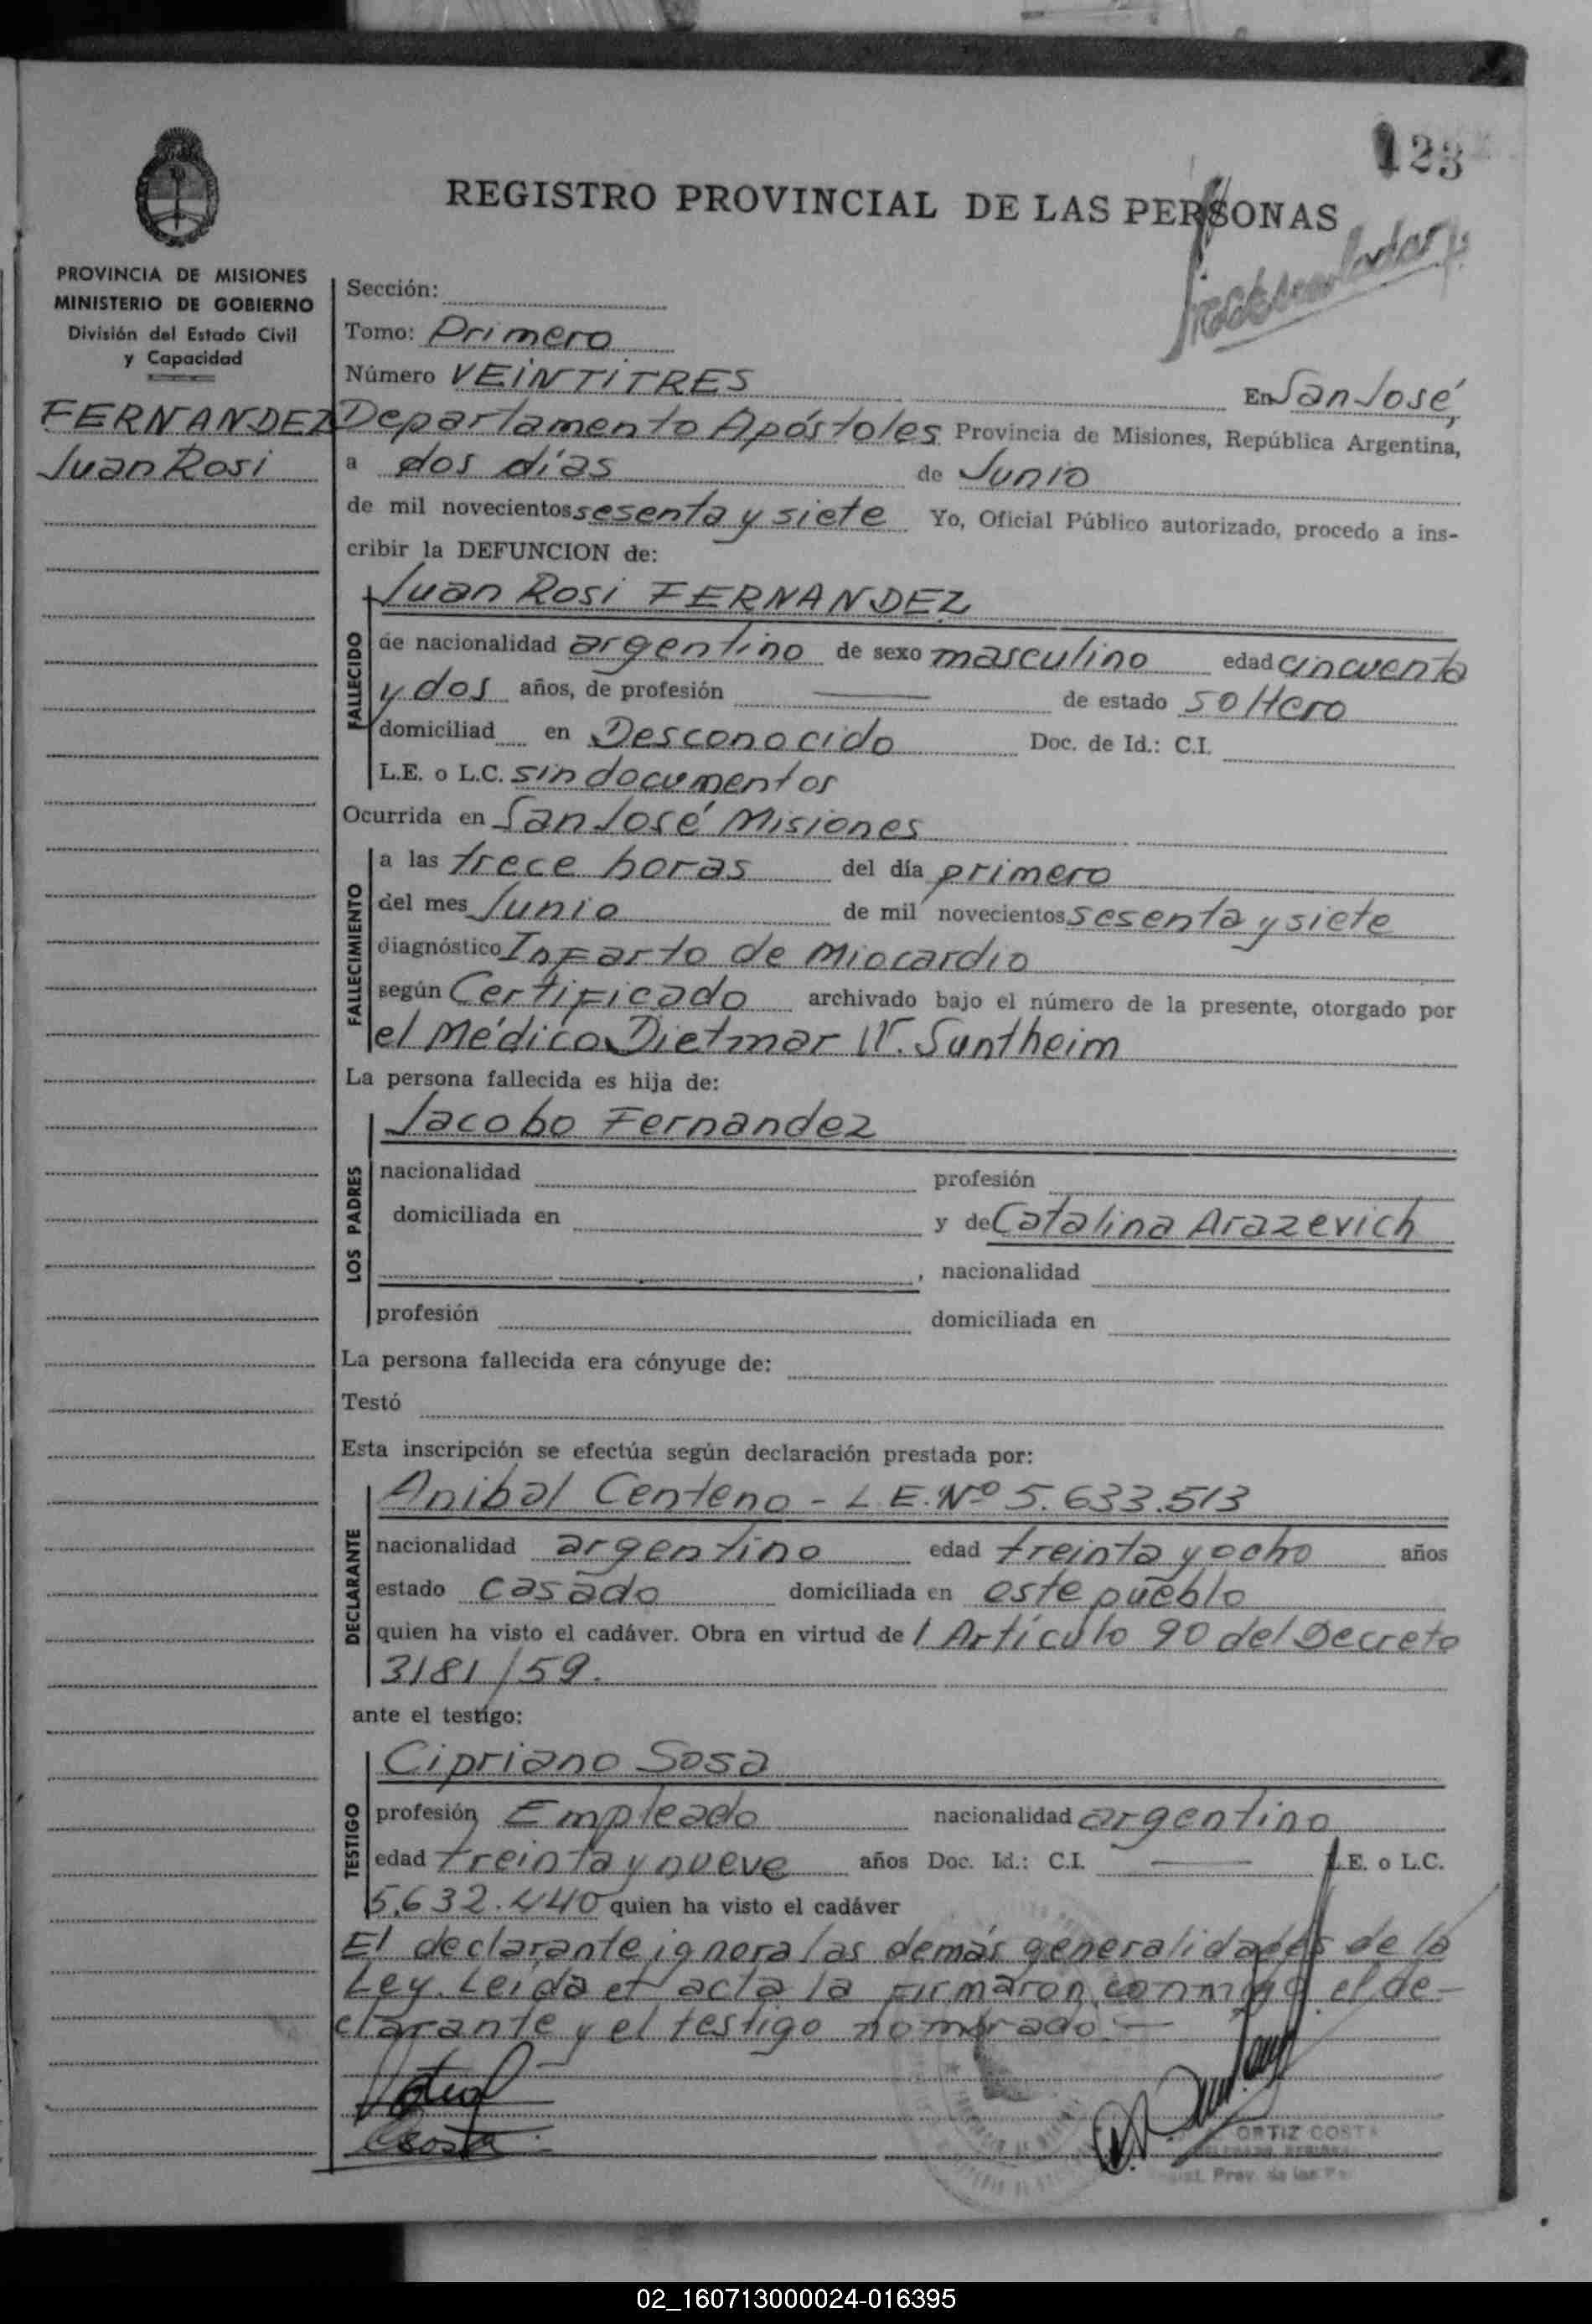 123
REGISTRO PROVINCIAL DE LAS PERSONAS
PROVINCIA DE MISIONES
MINISTERIO DE GOBIERNO
División del Estado Civil
y Capacidad
FERNANDEZ
Juan Rosi
Sección:
Tomo: Primero
Número VEINTITRES En San José,
Departamento Apóstoles Provincia de Misiones, República Argentina,
a dos días de Junio
de mil novecientos sesenta y siete Yo, Oficial Público autorizado, procedo a ins-
cribir la DEFUNCION de:
Juan Rosi FERNANDEZ
FALLECIDO
de nacionalidad argentino de sexo masculino edad cincuenta
y dos años, de profesión de estado soltero
domiciliad en Desconocido Doc. de Id.: C.I.
L.E. o L.C. sin documentos
Ocurrida en San José Misiones
FALLECIMIENTO
a las trece horas del día primero
del mes Junio de mil novecientos sesenta y siete
diagnóstico Infarto de Miocardio
según Certificado archivado bajo el número de la presente, otorgado por
el Médico Dietmar W. Suntheim
La persona fallecida es hija de:
LOS PADRES
Jacobo Fernandez
nacionalidad profesión
domiciliada en y de Catalina Arazevich
, nacionalidad
profesión domiciliada en
La persona fallecida era cónyuge de:
Testó
Esta inscripción se efectúa según declaración prestada por:
DECLARANTE
Anibal Centeno - L.E. Nº 5.633.513
nacionalidad argentino edad treinta y ocho años
estado casado domiciliada en este pueblo
quien ha visto el cadáver. Obra en virtud de l Artículo 90 del Decreto
3181/59.
ante el testigo:
TESTIGO
Cipriano Sosa
profesión Empleado nacionalidad argentino
edad treinta y nueve años Doc. Id.: C.I. — L.E. o L.C.
5.632.440 quien ha visto el cadáver
El declarante ignora las demás generalidades de la
Ley. Leída el acta la firmaron conmigo el de-
clarante y el testigo nombrado.—
ORTIZ COSTA
02_160713000024-016395